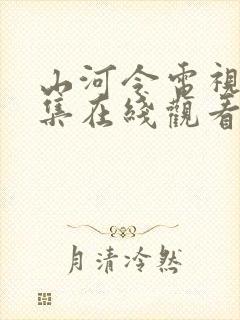 山河令電視
集在綫觀看
月清冷然